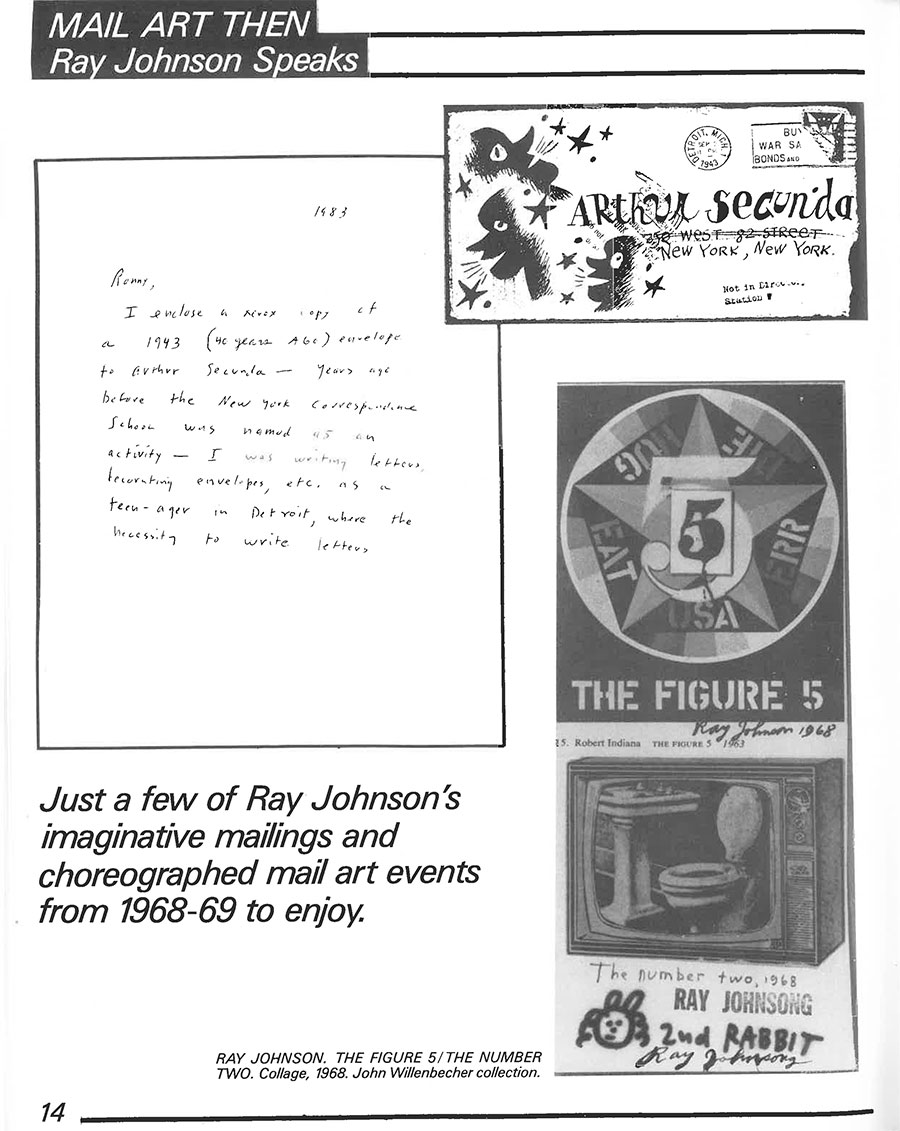 MAIL ART THEN
Ray Johnson Speaks
DETROIT, MICH.
1943
BUY
WAR SA
BONDS AND
ARthur Secunda
250 WEST 82 STREET
New York, New York.
Not in Direc
Station
1983
Ronny,
I enclose a xerox copy of
a 1943 (40 years AGO) envelope
to Arthur Secunda — years ago
before the New York Correspondence
School was named as an
activity — I was writing letters,
decorating envelopes, etc. as a
teen-ager in Detroit, where the
necessity to write letters
5
5
DIE
HUG
EAT
ERR
USA
THE FIGURE 5
Ray Johnson 1968
15. Robert Indiana THE FIGURE 5 1963
The number two, 1968
RAY JOHNSONG
2nd RABBIT
Ray Johnsong
Just a few of Ray Johnson's
imaginative mailings and
choreographed mail art events
from 1968-69 to enjoy.
RAY JOHNSON. THE FIGURE 5/THE NUMBER
TWO. Collage, 1968. John Willenbecher collection.
14